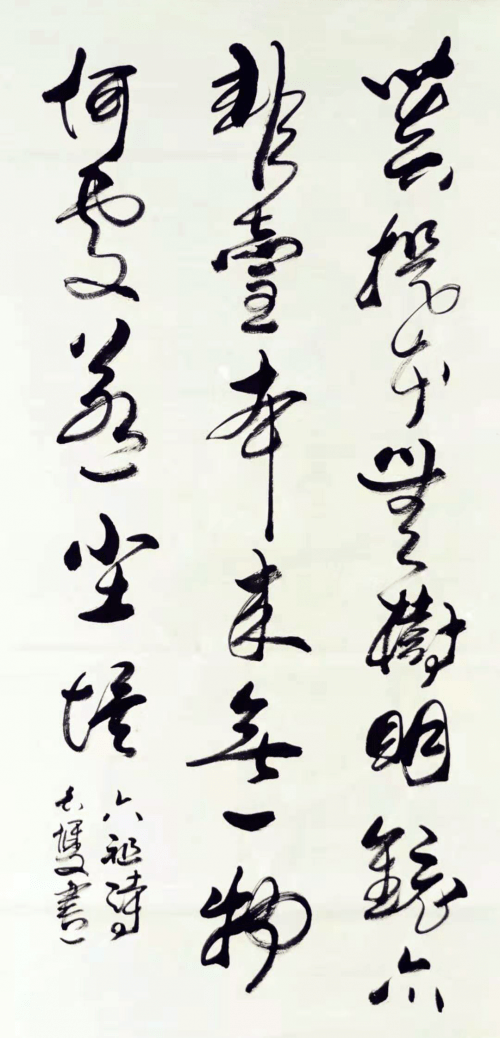 菩提本無樹明鏡亦
非臺本來無一物
何處惹尘埃
六祖詩
書